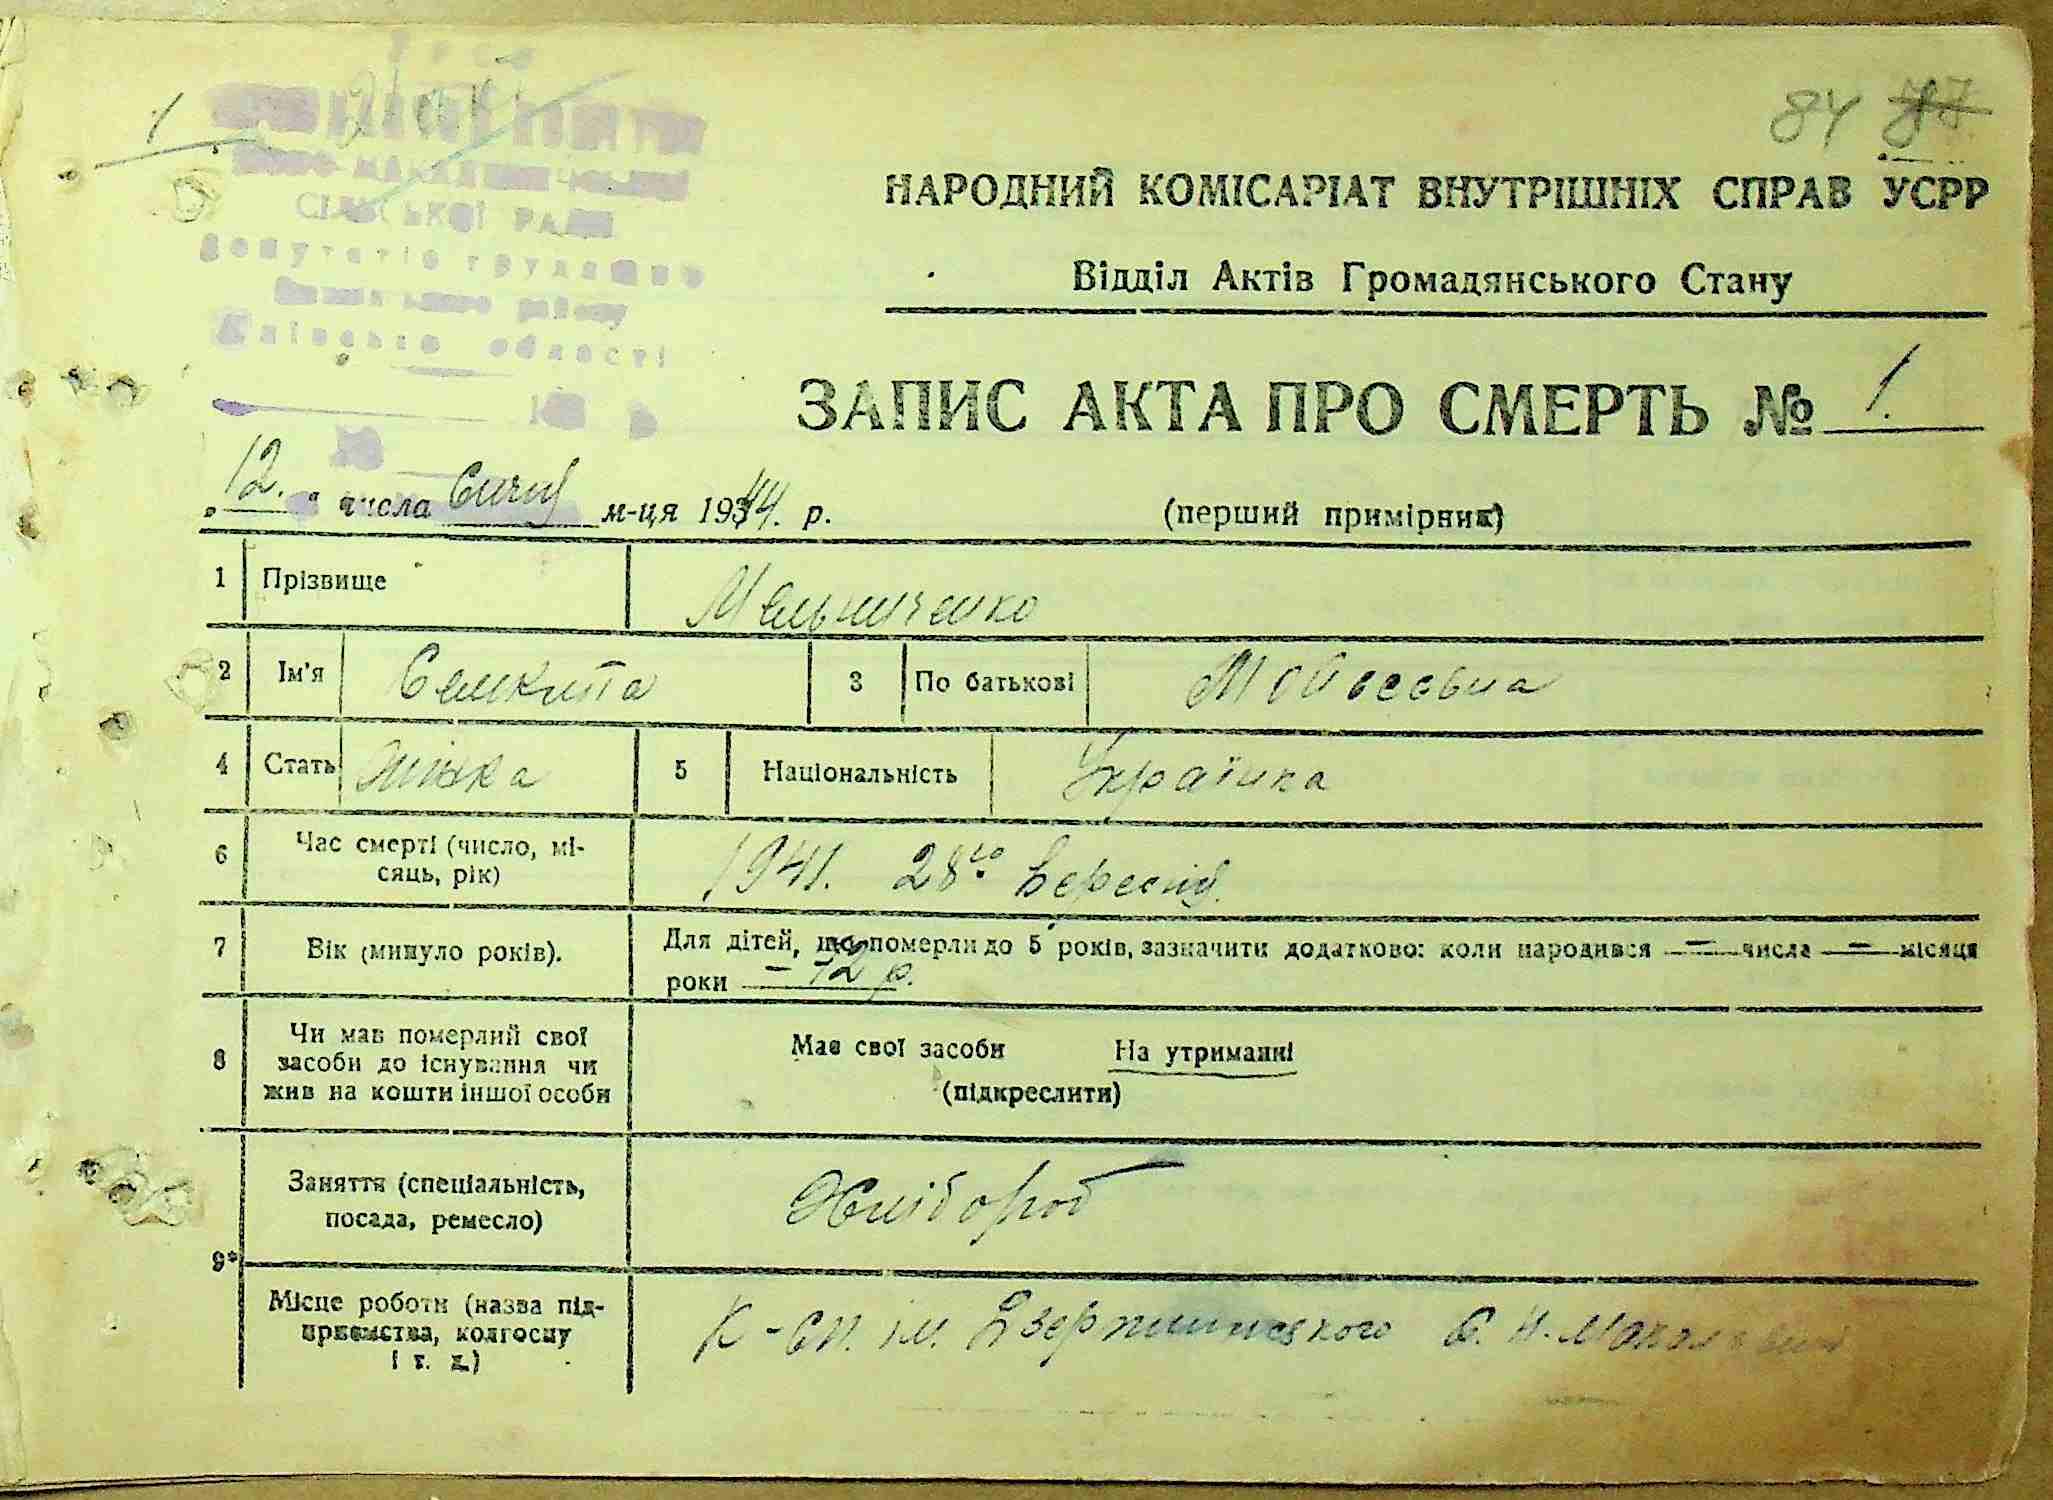 1
84 87
СІЛЬСЬКОЇ РАДИ
депутатів трудящих
району
Київської області
НАРОДНИЙ КОМІСАРІАТ ВНУТРІШНІХ СПРАВ УСРР
Відділ Актів Громадянського Стану
ЗАПИС АКТА ПРО СМЕРТЬ № 1.
„12." числа Січня м-ця 1944. р. (перший примірник)
1 Прізвище Мельниченко
2 Ім'я 3 По батькові Мойсеєвна
4 Стать Жінка 5 Національність Українка
6 Час смерті (число, мі-
сяць, рік) 1941. 28го Вересня.
7 Вік (минуло років). Для дітей, що померли до 5 років, зазначити додатково: коли народився — числа — місяця
роки – 72 р.
8 Чи мав померлий свої
засоби до існування чи
жив на кошти іншої особи
Має свої засоби На утриманні
(підкреслити)
9*
Заняття (спеціальність,
посада, ремесло) Хлібороб
Місце роботи (назва під-
приємства, колгоспу
і т. д.) К-сп. ім. Дзержинського С. Н.-